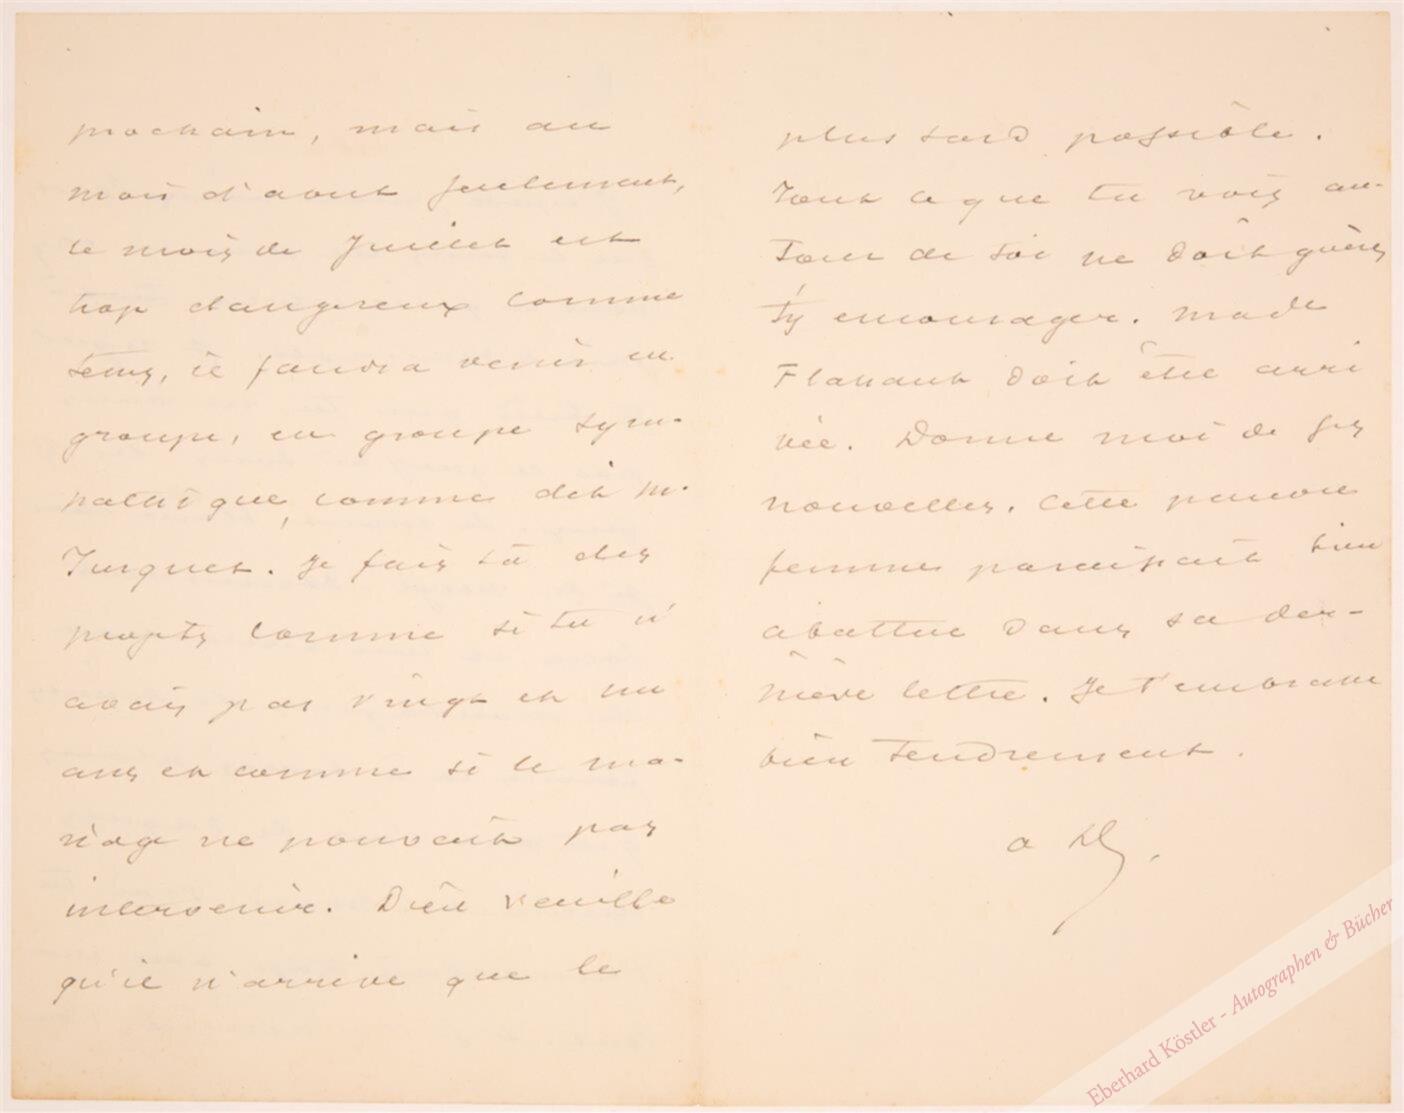 prochain, mais au
mois d'aout seulement,
le mois de Juillet est
trop dangereux comme
tems, il faudra venir en
groupe, en groupe sym-
pathique, comme dit M.
Turquet. Je fais là des
projets comme si tu n'
avais pas vingt et un
ans et comme si le ma-
riage ne pouvait pas
intervenir. Dieu veuille
qu'il n'arrive que le
plus tard possible.
Tout ce que tu vois au-
tour de toi ne doit guères
t'y encourager. Made
Flahaut doit être arri
vée. Donne moi de ses
nouvelles. Cette pauvre
femme paraissait bien
abattue dans sa der-
nière lettre. Je t'embrasse
bien tendrement.
a D.
Eberhard Köstler - Autographen & Bücher